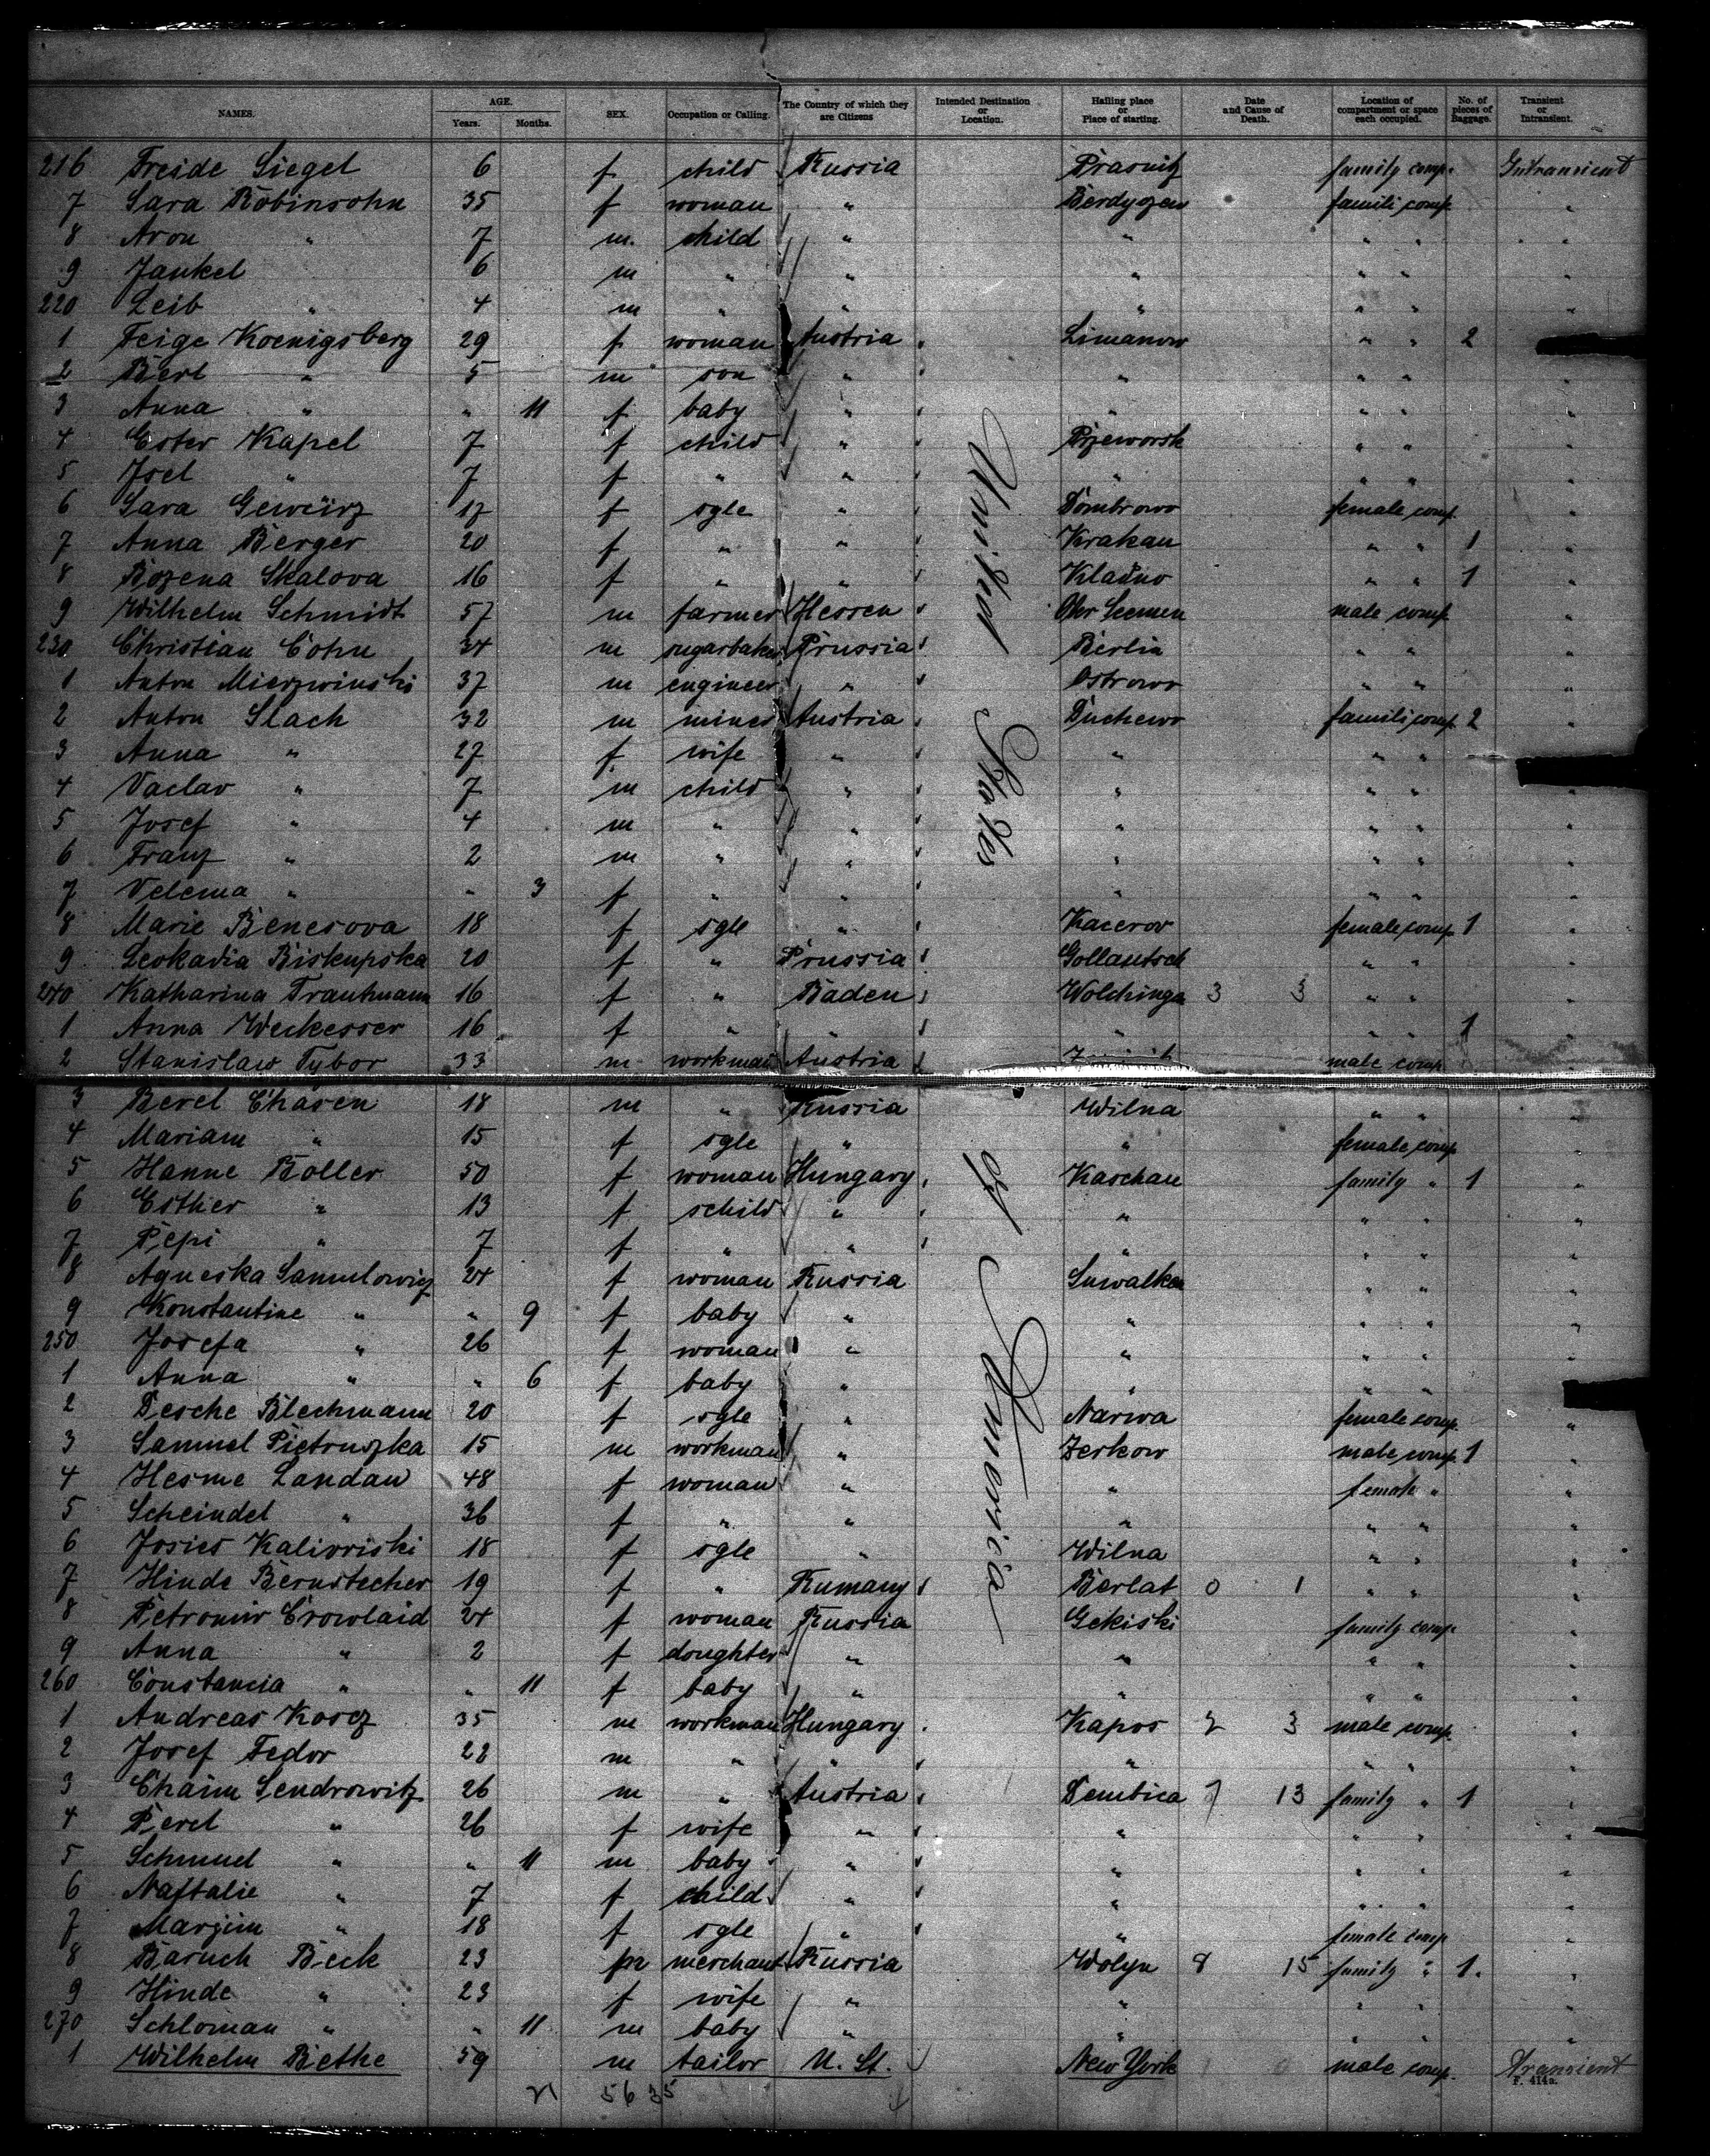 NAMES. AGE. Years. Months. SEX. Occupation or Calling. The Country of which they are Citizens Intended Destination or Location. Hailing place or Place of starting. Date and Cause of Death. Location of compartment or space each occupied. No. of pieces of Baggage. Transient or Intransient.
216 Freide Siegel 6 f child Russia Prasnitz family comp. Intransient
7 Sara Robinsohn 35 f woman " Berdyczew famili comp. "
8 Aron " 7 m. child " " " " "
9 Jankel 6 m " " " " " "
220 Leib " 4 m " " " " " "
1 Feige Koenigsberg 29 f woman Austria Limanow " " 2
2 Berl " 5 m son " " " " "
3 Anna " " 11 f baby " " " " "
4 Ester Kapel 7 f child " Przeworsk " " "
5 Isel " 7 f " " " " " "
6 Sara Gewürz 17 f sgle " Dombrowo female comp. "
7 Anna Berger 20 f " " Krakau " " 1 "
8 Bozena Skalova 16 f " " Kladno " " 1 "
9 Wilhelm Schmidt 57 m farmer Hessen Ober Seemen male comp "
230 Christian Cohn 34 m sugarbaker Prussia Berlin " " "
1 Anton Mierzwinski 37 m engineer " Ostrowo " " "
2 Anton Slach 32 m miner Austria Duchewo famili comp. 2 "
3 Anna " 27 f wife " " " "
4 Vaclav " 7 m child " " " " "
5 Josef " 4 m " " " " " "
6 Franz " 2 m " " " " " "
7 Velema " " 3 f " " " " " "
8 Marie Benesova 18 f sgle " Kacerov female comp. 1 "
9 Leokadia Biskupska 20 f " Prussia Gollantsch " " "
240 Katharina Trautmann 16 f " Baden Wolchinga 3 3 " " "
1 Anna Weckesser 16 f " " " " " 1 "
2 Stanislaw Tybor 33 m workman Austria male comp
3 Berel Chasen 18 m " Russia Wilna " " "
4 Mariam " 15 f sgle " " female comp "
5 Hanne Roller 50 f woman Hungary Kaschau family " 1 "
6 Esther " 13 f schild " " " " "
7 Pepi " 7 f " " " " " "
8 Agneska Samulowicz 24 f woman Russia Suwalken " " "
9 Konstantine " " 9 f baby " " " " "
250 Josefa " 26 f woman " " " " "
1 Anna " " 6 f baby " " " " "
2 Pesche Blechmann 20 f sgle " Narwa female comp. "
3 Samuel Pietruszka 15 m workman " Zerkow male comp. 1 "
4 Hesme Landau 48 f woman " " female " "
5 Scheindel " 36 f " " " " " "
6 Josies Kaliwriski 18 f sgle " Wilna " " "
7 Hinde Bernstecher 19 f " Rumany Berlat 0 1 " " "
8 Petronuv Crowlaid 24 f woman Russia Gekiski family comp. "
9 Anna " 2 f doughter " " " " "
260 Constancia " " 11 f baby " " " " "
1 Andreas Koscz 35 m workman Hungary Kapos 2 3 male comp. "
2 Josef Fedor 22 m " " " " " "
3 Chaim Sendrowitz 26 m " Austria Dembica 7 13 family " 1 "
4 Perel " 26 f wife " " " " "
5 Schmuel " " 11 m baby " " " " "
6 Naftalie " 7 f child " " " " "
7 Marjim " 18 f sgle " " female comp "
8 Baruch Beck 23 m merchant Russia Wolyn 8 15 family " 1. "
9 Hinde " 23 f wife " " " " "
270 Schloman " " 11 m baby " " " " "
1 Wilhelm Bethe 59 m tailor U. St. New York male comp. Transient
United States of America
21 56 35
F. 414a.